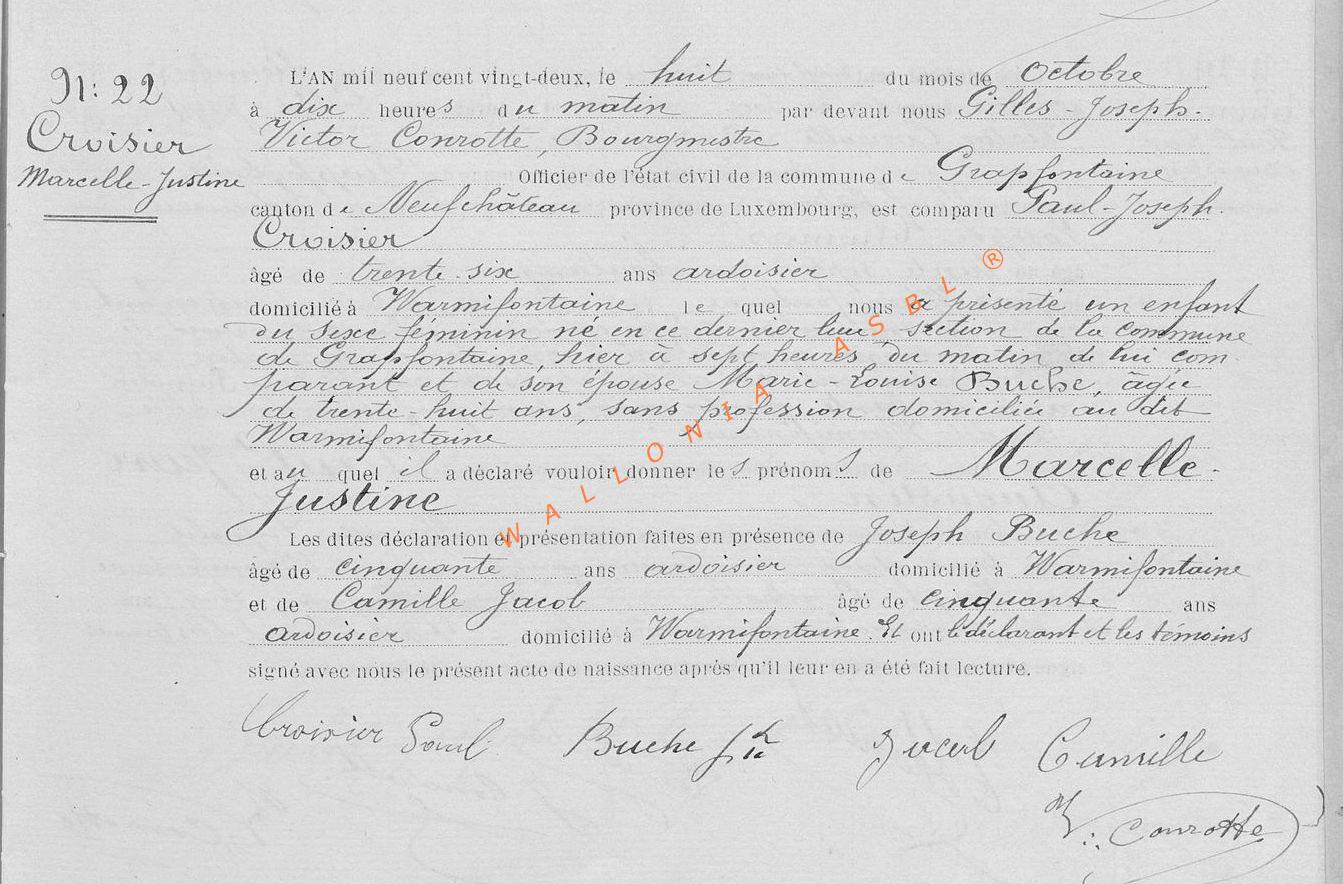 N: 22
Croisier
Marcelle-Justine
L'AN mil neuf cent vingt-deux, le huit du mois de Octobre
à dix heures du matin par devant nous Gilles-Joseph-
Victor Conrotte, Bourgmestre
Officier de l'état civil de la commune de Grapfontaine
canton de Neufchâteau province de Luxembourg, est comparu Paul-Joseph.
Croisier
âgé de trente-six ans ardoisier
domicilié à Warmifontaine lequel nous a présenté un enfant
du sexe féminin né en ce dernier lieu section de la commune
de Grapfontaine, hier à sept heures du matin de lui com-
parant et de son épouse Marie-Louise Buche, âgée
de trente-huit ans, sans profession domiciliée au dit
Warmifontaine
et au quel il a déclaré vouloir donner les prénoms de Marcelle-
Justine
Les dites déclaration et présentation faites en présence de Joseph Buche
âgé de cinquante ans ardoisier domicilié à Warmifontaine
et de Camille Jacob âgé de cinquante ans
ardoisier domicilié à Warmifontaine. Et ont le déclarant et les témoins
signé avec nous le présent acte de naissance après qu'il leur en a été fait lecture.
Croisier Paul Buche Jh Jacob Camille
V. Conrotte
WALLONIA ASBL ®